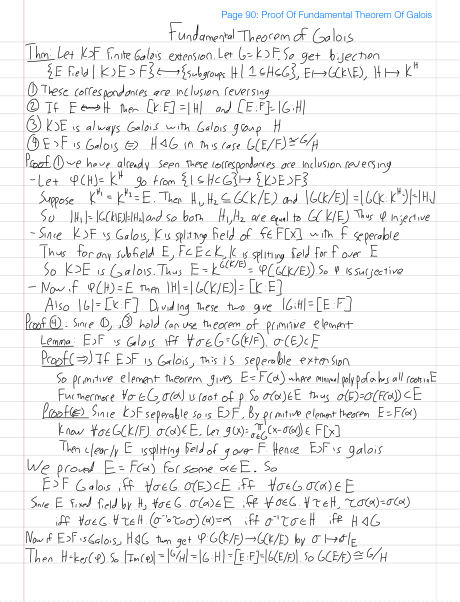 Page 90: Proof Of Fundamental Theorem Of Galois
Fundamental Theorem of Galois
Thm: Let K⊃F finite Galois extension. Let G=K⊃F. So get bijection
{E field | K⊃E⊃F} ⟷ {subgroups H | 1≤H≤G}, E↦G(K\E), H↦K^H
① These correspondances are inclusion reversing
② If E⟷H then [K:E]=|H| and [E:F]=|G:H|
③ K⊃E is always Galois with Galois group H
④ E⊃F is Galois ⇔ H⊲G in this case G(E/F)≅G/H
Proof ① we have already seen these correspondances are inclusion reversing
- Let φ(H)=K^H go from {1≤H≤G}↦{K⊃E⊃F}
Suppose K^H₁=K^H₂=E. Then H₁,H₂≤G(K/E) and |G(K/E)|=|G(K:K^Hᵢ)|=|Hᵢ|
So |H₁|=|G(K|E)|=|H₂| and so both H₁,H₂ are equal to G(K/E) Thus φ injective
- Since K⊃F is Galois, K is spliting field of f∈F[x] with f seperable
Thus for any subfield E, F⊂E⊂K, K is spliting field for f over E
So K⊃E is Galois. Thus E=K^G(K/E)=φ(G(K/E)) So φ is surjective
- Now if φ(H)=E then |H|=|G(K/E)|=[K:E]
Also |G|=[K:F]. Dividing these two give |G:H|=[E:F]
Proof ④: Since ①,③ hold can use theorem of primitive element
Lemma: E⊃F is Galois iff ∀σ∈G=G(K/F). σ(E)⊂E
Proof(⇒) If E⊃F is Galois, this is seperable extension
So primitive element theorem gives E=F(α) where minimal poly p of α has all roots in E
Furthermore ∀σ∈G, σ(α) is root of p. So σ(α)∈E thus σ(E)=σ(F(α))⊂E
Proof(⇐) Since K⊃F seperable so is E⊃F. By primitive element theorem E=F(α)
Know ∀σ∈G(K/F). σ(α)∈E. Let g(x)=∏σ∈G(x-σ(α))∈F[x]
Then clearly E is spliting field of g over F Hence E⊃F is galois
We proved E=F(α) for some α∈E. So
E⊃F Galois iff ∀σ∈G. σ(E)⊂E iff ∀σ∈G. σ(α)∈E
Since E fixed field by H, ∀σ∈G. σ(α)∈E iff ∀σ∈G ∀τ∈H, τσ(α)=σ(α)
iff ∀σ∈G. ∀τ∈H. (σ⁻¹∘τ∘σ)(α)=α iff σ⁻¹τσ∈H iff H⊲G
Now if E⊃F is Galois, H⊲G then get φ:G(K/F)→G(K/E) by σ↦σ|E
Then H=ker(φ) So |Im(φ)|=|G/H|=|G:H|=[E:F]=|G(E/F)|. So G(E/F)≅G/H